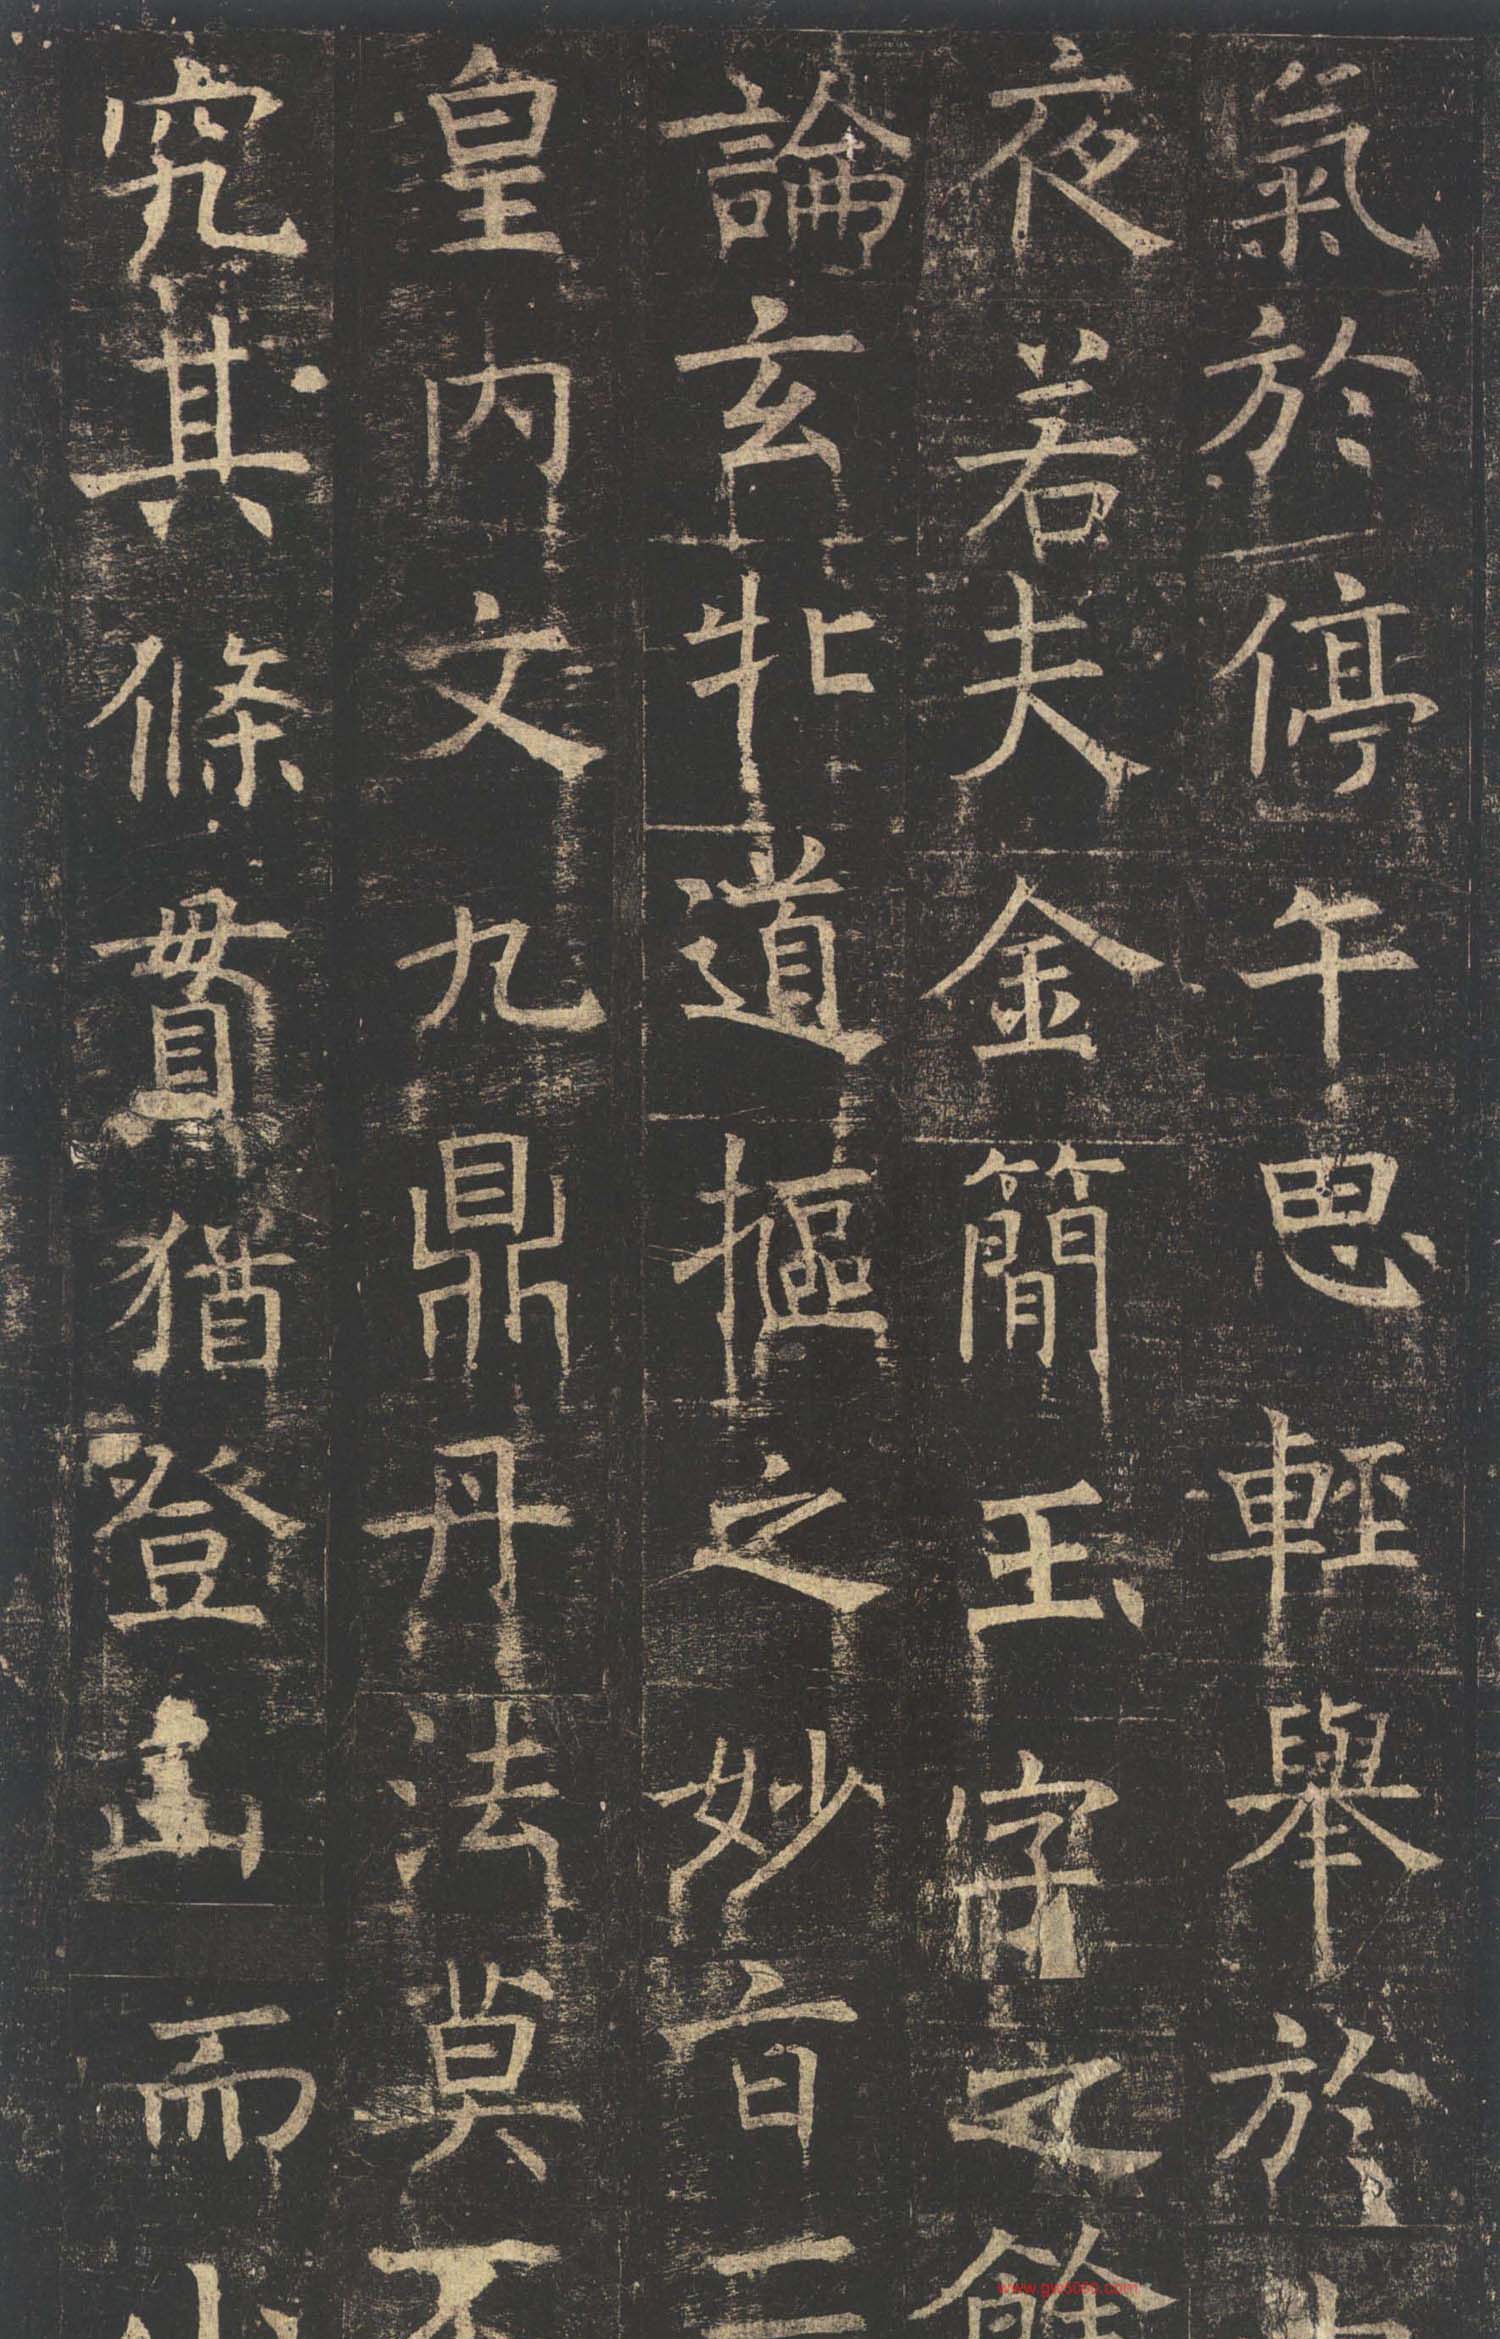 氣於停午思輕舉於中
夜若夫金簡玉字之餘
論玄牝道樞之妙旨三
皇內文九鼎丹法莫不
究其條貫猶登山而小
www.gw5000.com